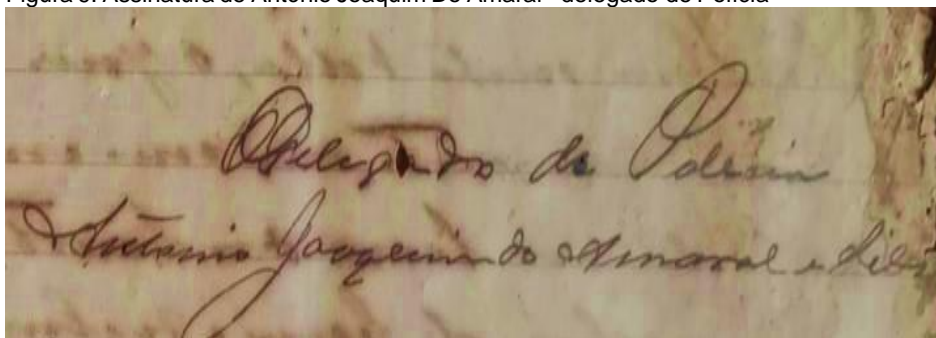 Figura 9: Assinatura de Antônio Joaquim Do Amaral - delegado de Polícia
O Delegado de Policia
Antonio Joaquim do Amaral e Silva